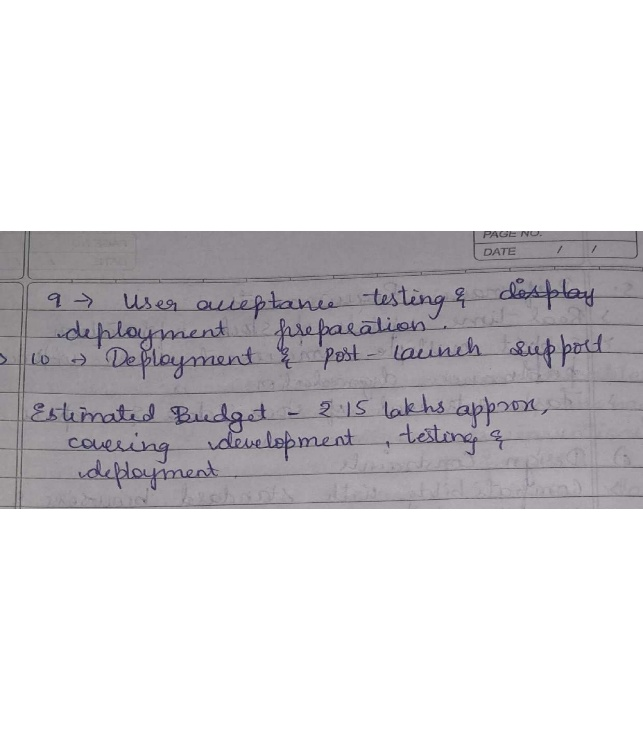 PAGE NO.
DATE / /
9 → User acceptance testing & display
deployment preparation.
10 → Deployment & post-launch support
Estimated Budget - ₹15 lakhs approx,
covering development, testing &
deployment